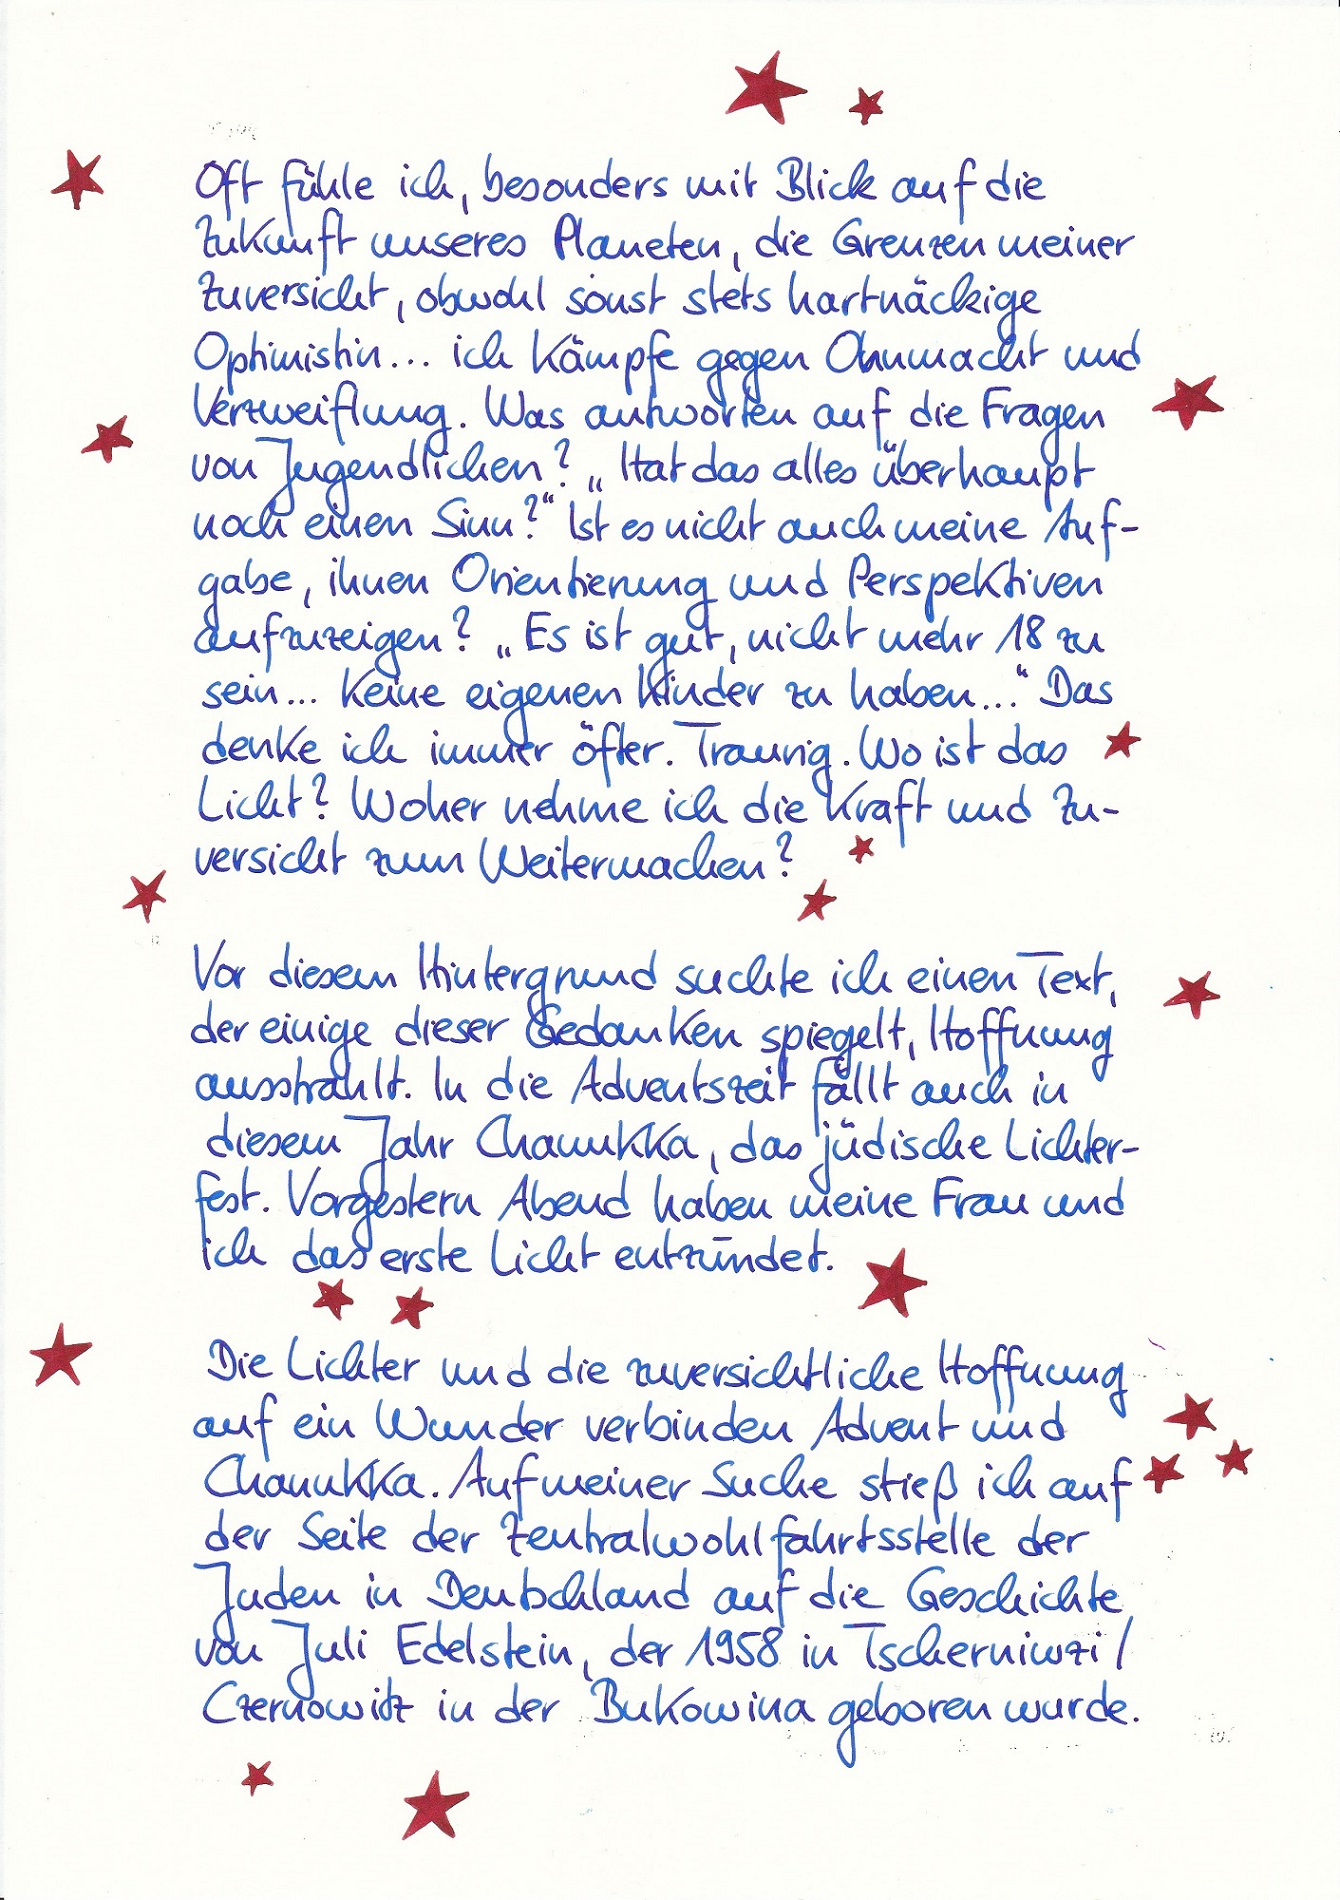 Oft fühle ich, besonders mit Blick auf die
Zukunft unseres Planeten, die Grenzen meiner
Zuversicht, obwohl sonst stets hartnäckige
Optimistin... ich kämpfe gegen Ohnmacht und
Verzweiflung. Was antworten auf die Fragen
von Jugendlichen? „Hat das alles überhaupt
noch einen Sinn?“ Ist es nicht auch meine Auf-
gabe, ihnen Orientierung und Perspektiven
aufzuzeigen? „Es ist gut, nicht mehr 18 zu
sein... Keine eigenen Kinder zu haben...“ Das
denke ich immer öfter. Traurig. Wo ist das
Licht? Woher nehme ich die Kraft und Zu-
versicht zum Weitermachen?
Vor diesem Hintergrund suchte ich einen Text,
der einige dieser Gedanken spiegelt, Hoffnung
ausstrahlt. In die Adventszeit fällt auch in
diesem Jahr Chanukka, das jüdische Lichter-
fest. Vorgestern Abend haben meine Frau und
ich das erste Licht entzündet.
Die Lichter und die zuversichtliche Hoffnung
auf ein Wunder verbinden Advent und
Chanukka. Auf meiner Suche stieß ich auf
der Seite der Zentralwohlfahrtsstelle der
Juden in Deutschland auf die Geschichte
von Juli Edelstein, der 1958 in Tscherniwzi/
Czernowitz in der Bukowina geboren wurde.